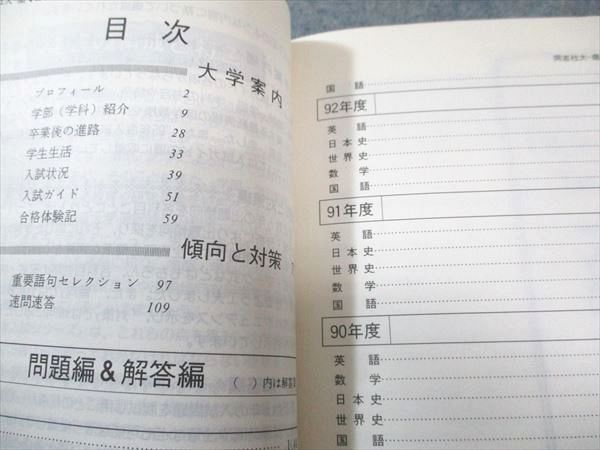 目次
大学案内
プロフィール 2
学部（学科）紹介 9
卒業後の進路 28
学生生活 33
入試状況 39
入試ガイド 51
合格体験記 59
傾向と対策
重要語句セレクション 97
速問速答 109
問題編＆解答編 （ ）内は解答
同志社大-
国語
92年度
英語
日本史
世界史
数学
国語
91年度
英語
日本史
世界史
数学
国語
90年度
英語
数学
日本史
世界史
国語